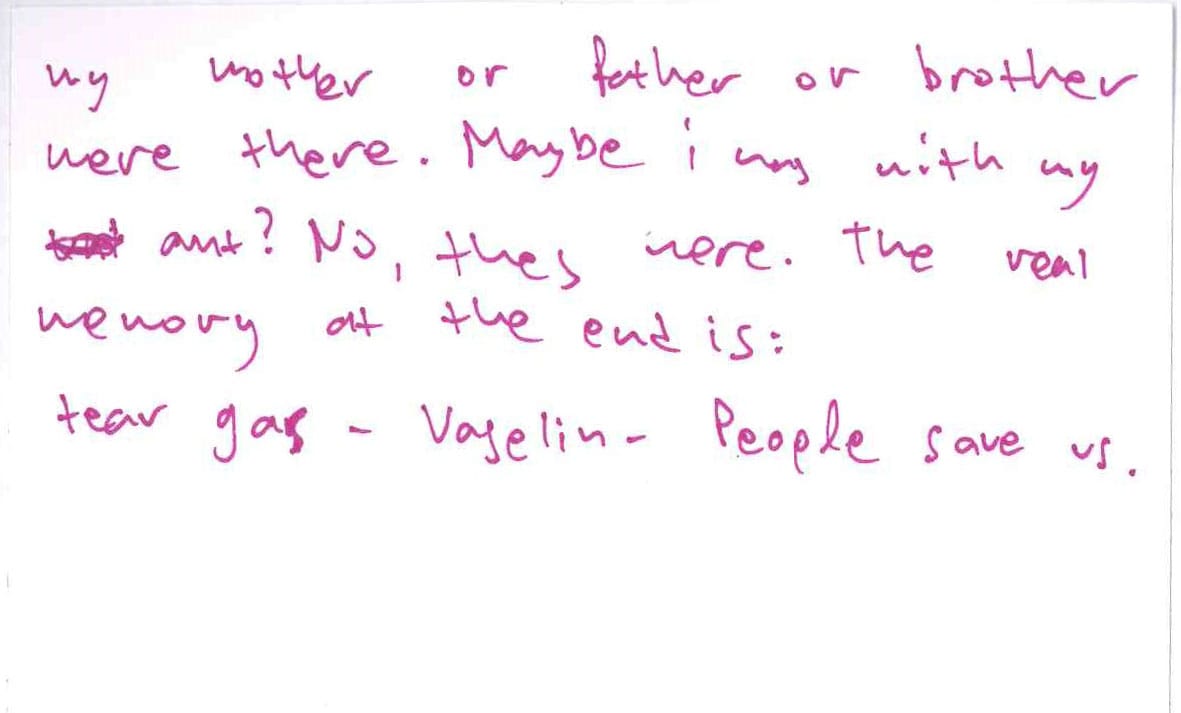 my mother or father or brother
were there. Maybe i was with my
ant? No, they were. The real
memory at the end is:
tear gas - Vaselin - People save us.